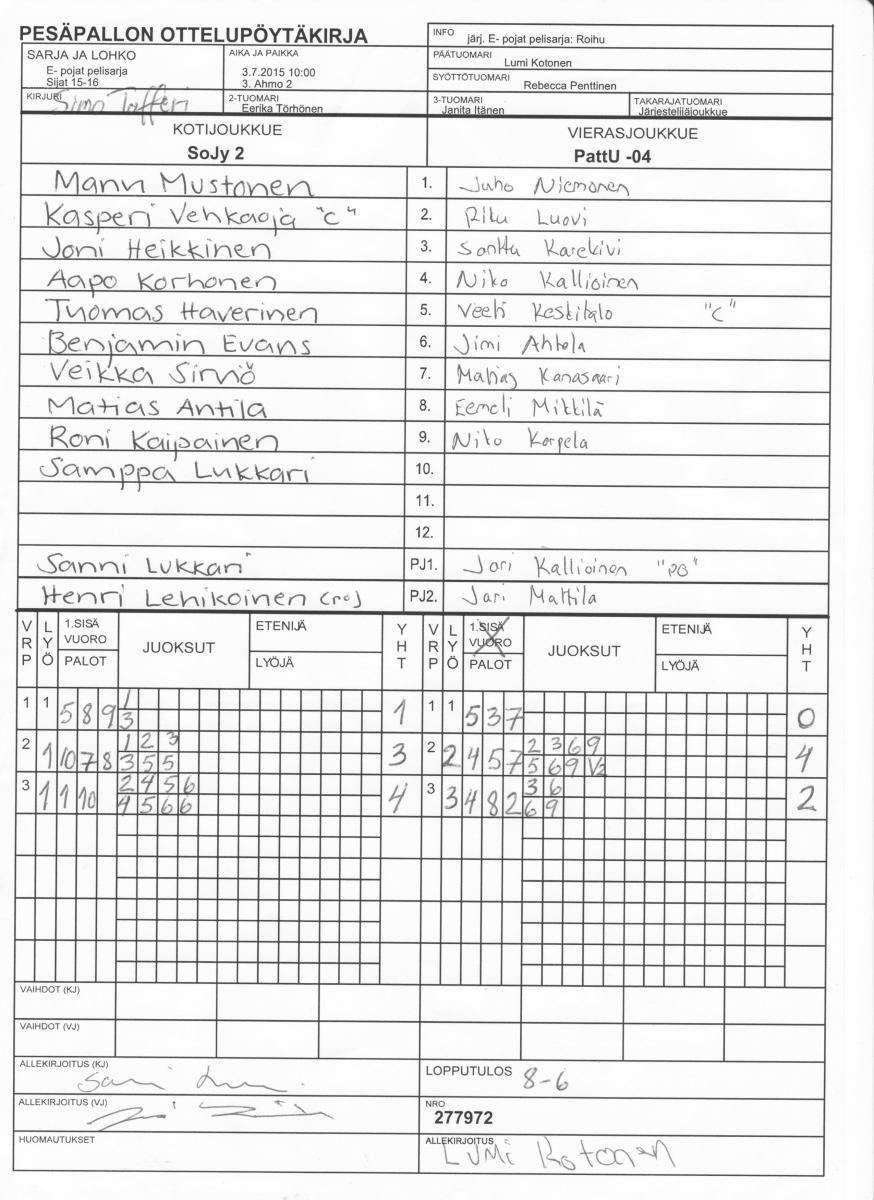 PESÄPALLON OTTELUPÖYTÄKIRJA
INFO järj. E- pojat pelisarja: Roihu
SARJA JA LOHKO
E- pojat pelisarja
Sijat 15-16
AIKA JA PAIKKA
3.7.2015 10:00
3. Ahmo 2
PÄÄTUOMARI Lumi Kotonen
SYÖTTÖTUOMARI Rebecca Penttinen
KIRJURI Simo Tafferi
2-TUOMARI
Eerika Törhönen
3-TUOMARI
Janita Itänen
TAKARAJATUOMARI
Järjesteliiäjoukkue
KOTIJOUKKUE
SoJy 2
VIERASJOUKKUE
PattU -04
Manu Mustonen 1. Juho Niemonen
Kasperi Vehkaoja "C" 2. Riku Luovi
Joni Heikkinen 3. Santtu Karekivi
Aapo Korhonen 4. Niko Kallioinen
Tuomas Haverinen 5. Veeti Keskitalo "C"
Benjamin Evans 6. Jimi Ahtola
Veikka Sirviö 7. Matias Kanasaari
Matias Antila 8. Eemeli Mittilä
Roni Kaipainen 9. Niko Korpela
Samppa Lukkari 10.
11.
12.
Sanni Lukkari PJ1. Jari Kallioinen "PO"
Henri Lehikoinen (PJ) PJ2. Jari Mattila
VRP LYÖ 1.SISÄ VUORO PALOT JUOKSUT ETENIJÄ LYÖJÄ YHT VRP LYÖ 1.SISÄ VUORO PALOT JUOKSUT ETENIJÄ LYÖJÄ YHT
1 1 5 8 9 1 1 1 1 5 3 7 0
3
2 1 10 7 8 1 2 3 3 2 2 4 5 7 2 3 6 9 4
3 5 5 5 6 9 V2
3 1 1 10 2 4 5 6 4 3 3 4 8 2 3 6 2
4 5 6 6 6 9
VAIHDOT (KJ)
VAIHDOT (VJ)
ALLEKIRJOITUS (KJ)
LOPPUTULOS 8-6
ALLEKIRJOITUS (VJ)
NRO
277972
HUOMAUTUKSET
ALLEKIRJOITUS
Lumi Kotonen